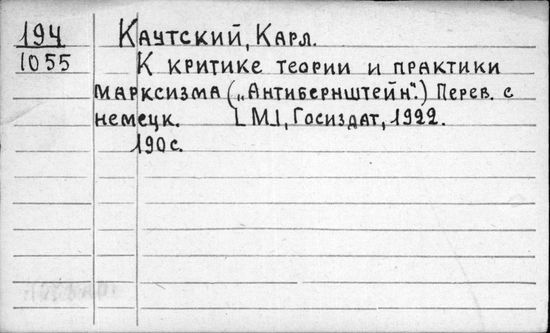 194
1055
Каутский, Карл.
К критике теории и практики
марксизма („Антибернштейн".) Перев. с
немецк. [М], Госиздат, 1922.
190 с.